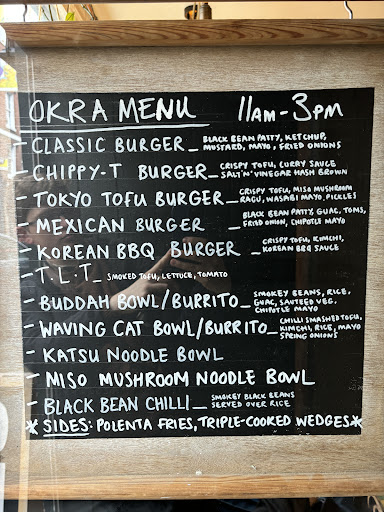 OKRA MENU 11AM-3PM
- CLASSIC BURGER_ BLACK BEAN PATTY, KETCHUP,
MUSTARD, MAYO, FRIED ONIONS
- CHIPPY-T BURGER_ CRISPY TOFU, CURRY SAUCE
SALT'N'VINEGAR HASH BROWN
- TOKYO TOFU BURGER_ CRISPY TOFU, MISO MUSHROOM
RAGU, WASABI MAYO, PICKLES
- MEXICAN BURGER _ BLACK BEAN PATTY, GUAC, TOMS,
FRIED ONION, CHIPOTLE MAYO
- KOREAN BBQ BURGER _ CRISPY TOFU, KIMCHI,
KOREAN BBQ SAUCE
- T.L.T_ SMOKED TOFU, LETTUCE, TOMATO
- BUDDAH BOWL/BURRITO_ SMOKEY BEANS, RICE,
GUAC, SAUTEED VEG,
CHIPOTLE MAYO
- WAVING CAT BOWL/BURRITO_ CHILLI SMASHED TOFU,
KIMCHI, RICE, MAYO
SPRING ONIONS
- KATSU NOODLE BOWL
- MISO MUSHROOM NOODLE BOWL
- BLACK BEAN CHILLI_ SMOKEY BLACK BEANS
SERVED OVER RICE
* SIDES: POLENTA FRIES, TRIPLE-COOKED WEDGES*